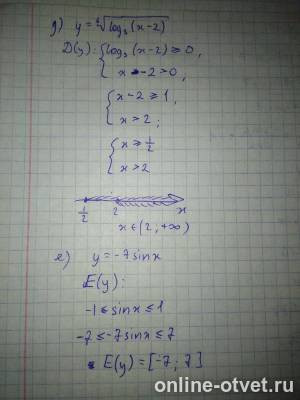 д) y = ∜log₃(x-2)
D(y): { log₃(x-2) ≥ 0,
x - 2 > 0,
{ x - 2 ≥ 1,
x > 2;
{ x ≥ 1/2
x > 2
1/2 2 x
x ∈ (2; +∞)
е) y = -7 sin x
E(y):
-1 ≤ sin x ≤ 1
-7 ≤ -7 sin x ≤ 7
E(y) = [-7; 7]
online-otvet.ru